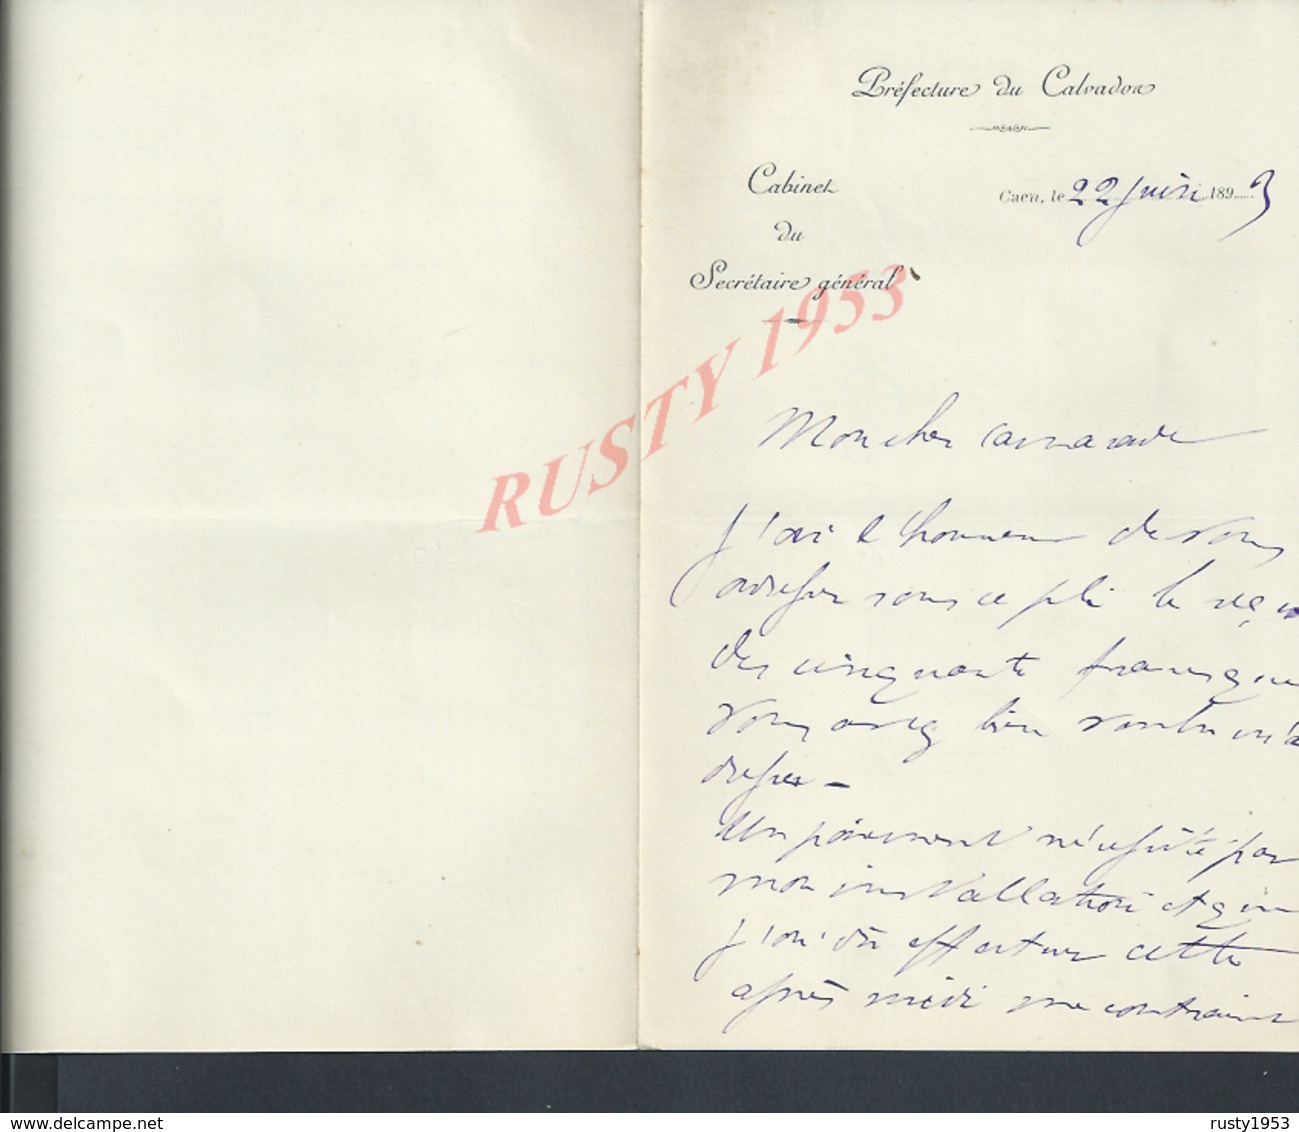 Préfecture du Calvados
Cabinet
du
Secrétaire général
Caen, le 22 juin 1893
RUSTY 1953
Mon cher camarade
J'ai l'honneur de vous
adresser sous ce pli le reçu
des cinquante francs que
vous avez bien voulu m'a
dresser -
Un paiement nécessité par
mon installation et que
j'ai dû effectuer cette
après midi me contraint
www.delcampe.net
rusty1953